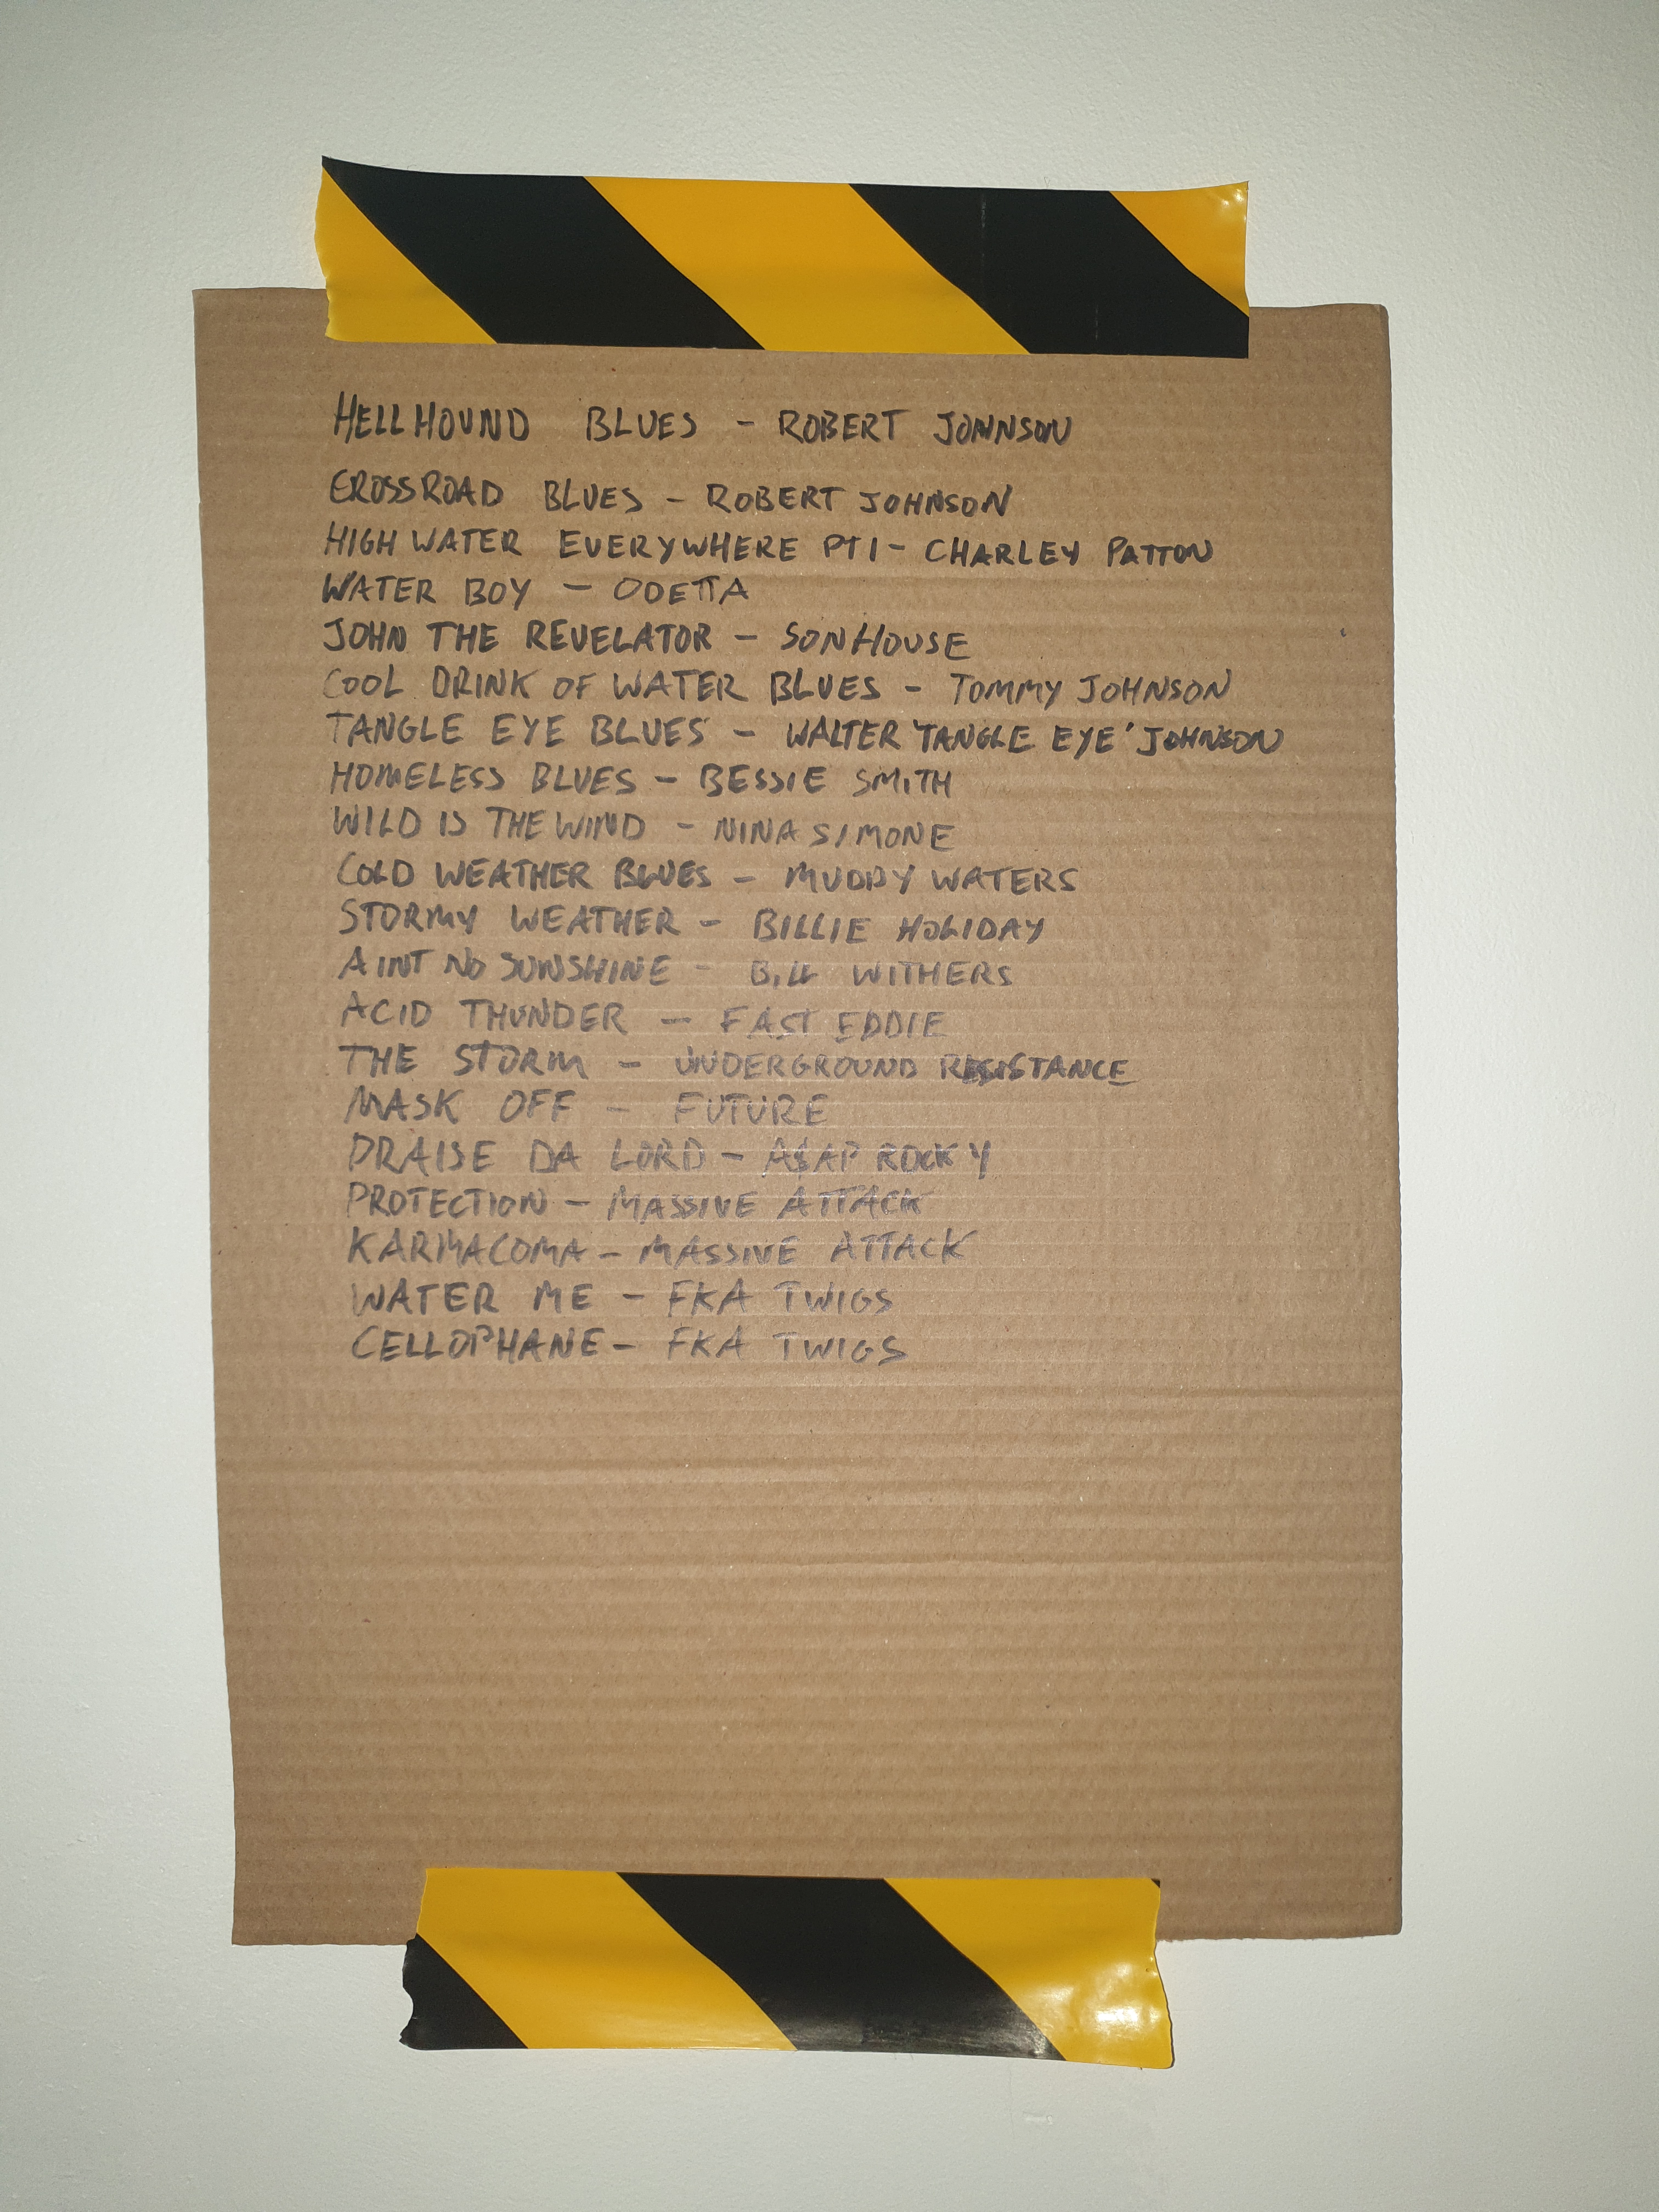 HELLHOUND BLUES - ROBERT JOHNSON
CROSSROAD BLUES - ROBERT JOHNSON
HIGH WATER EVERYWHERE PT1 - CHARLEY PATTON
WATER BOY - ODETTA
JOHN THE REVELATOR - SON HOUSE
COOL DRINK OF WATER BLUES - TOMMY JOHNSON
TANGLE EYE BLUES - WALTER 'TANGLE EYE' JOHNSON
HOMELESS BLUES - BESSIE SMITH
WILD IS THE WIND - NINA SIMONE
COLD WEATHER BLUES - MUDDY WATERS
STORMY WEATHER - BILLIE HOLIDAY
AINT NO SUNSHINE - BILL WITHERS
ACID THUNDER - FAST EDDIE
THE STORM - UNDERGROUND RESISTANCE
MASK OFF - FUTURE
PRAISE DA LORD - A$AP ROCKY
PROTECTION - MASSIVE ATTACK
KARMACOMA - MASSIVE ATTACK
WATER ME - FKA TWIGS
CELLOPHANE - FKA TWIGS